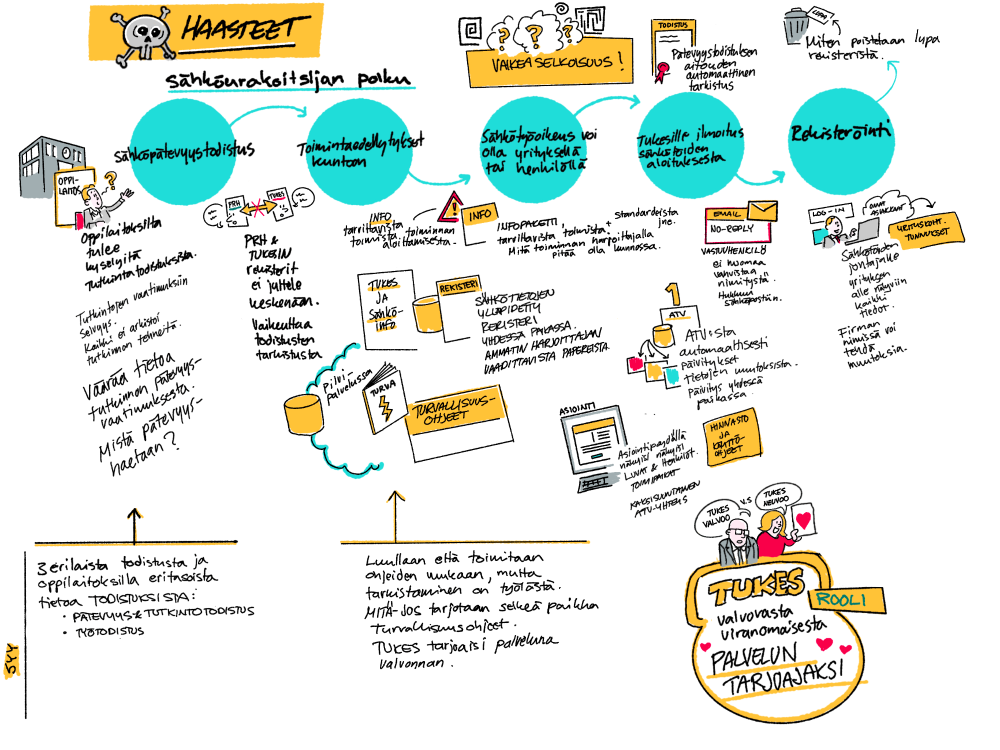 HAASTEET
Sähköurakoitsijan polku
VAIKEASELKOISUUS!
TODISTUS
Pätevyystodistuksen
aitouden
automaattinen
tarkistus
LUPA
Miten poistetaan lupa
rekisteristä.
Sähköpätevyystodistus
Toimintaedellytykset
kuntoon
Sähkötyöoikeus voi
olla yrityksellä
tai henkilöllä
Tukesille ilmoitus
sähkötöiden
aloituksesta
Rekisteröinti
OPPI-
LAITOS
?
Oppilaitoksilta
tulee
kyselyitä
Tutkintotodistuksista.
Tutkintojen vaatimuksiin
selvyys.
Kaikki ei arkistoi
tutkinnon tehneitä.
Väärää tietoa
tutkinnon pätevyys-
vaatimuksesta.
Mistä pätevyys-
haetaan?
PRH
TUKES
PRH &
TUKESIN
rekisterit
ei juttele
keskenään.
Vaikeuttaa
todistusten
tarkistusta
INFO
tarvittavista toiminnan
toimista, aloittamisesta.
INFO
INFOPAKETTI + standardeista
tarvittavista toimista, jne.
Mitä toiminnan harjoittajalla
pitää olla kunnossa.
TUKES
JA
Sähkö-
info
REKISTERI
SÄHKÖTIETOJEN
YLLÄPIDETTY
REKISTERI
YHDESSÄ PAIKASSA.
AMMATIN HARJOITTAJAN
VAADITTAVISTA PAPEREISTA.
Pilvi-
palvelussa
TURVA
TURVALLISUUS-
OHJEET
EMAIL
NO-REPLY
VASTUUHENKILÖ
ei huomaa
vahvistaa
nimitystä.
Hukkuu
sähköpostiin.
1
ATV
ATV:stä
automaattisesti
päivitykset
tietojen muutoksista.
Päivitys yhdessä
paikassa.
LOG-IN
OMAT
ASIAKKAAT
YRITYSKOHT.
TUNNUKSET
Sähkötöiden
johtajalle
yrityksen
alle näkyviin
kaikki
tiedot.
Firman
nimissä voi
tehdä
muutoksia.
ASIOINTI
Asiointipöydällä
näkyisi
LUVAT & HENKILÖT.
TOIMIPAIKAT
KAKSISUUNTAINEN
ATV-YHTEYS
HINNASTO
JA
KÄYTTÖ-
OHJEET
SYY
3 erilaista todistusta ja
oppilaitoksilla eritasoista
tietoa TODISTUKSISTA:
• PÄTEVYYS & TUTKINTOTODISTUS
• TYÖTODISTUS
Luullaan että toimitaan
ohjeiden mukaan, mutta
tarkistaminen on työlästä.
MITÄ-JOS tarjotaan selkeä paikka
Turvallisuusohjeet.
TUKES tarjoaisi palveluna
valvonnan.
TUKES
VALVOO
V.S
TUKES
NEUVOO
TUKES
ROOLI
valvovasta
viranomaisesta
PALVELUN
TARJOAJAKSI